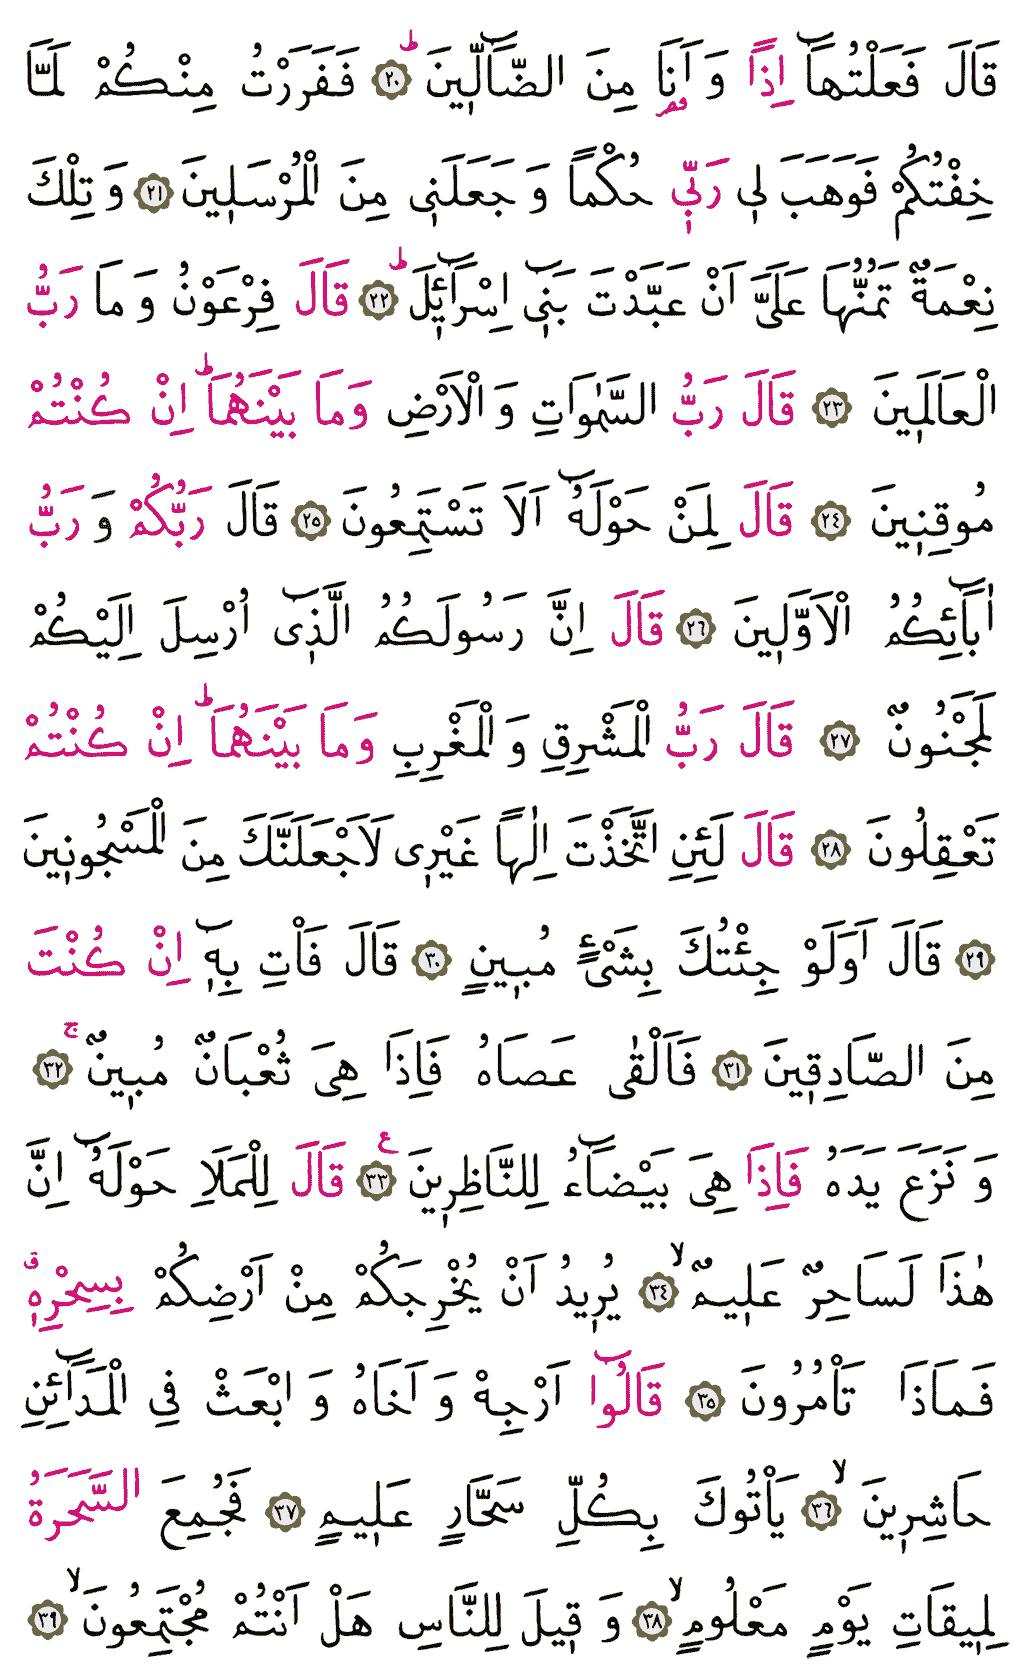 قَالَ فَعَلْتُهَٓا اِذًا وَ اَنَا۬ مِنَ الضَّٓالّٖينَؕ ﴿٢٠﴾ فَفَرَرْتُ مِنْكُمْ لَمَّا
خِفْتُكُمْ فَوَهَبَ لٖى رَبّٖى حُكْمًا وَ جَعَلَنٖى مِنَ الْمُرْسَلٖينَ ﴿٢١﴾ وَ تِلْكَ
نِعْمَةٌ تَمُنُّهَا عَلَىَّ اَنْ عَبَّدْتَ بَنٖٓى اِسْرَٓائٖلَؕ ﴿٢٢﴾ قَالَ فِرْعَوْنُ وَ مَا رَبُّ
الْعَالَمٖينَ ﴿٢٣﴾ قَالَ رَبُّ السَّمٰوَاتِ وَ الْاَرْضِ وَمَا بَيْنَهُمَاؕ اِنْ كُنْتُمْ
مُوقِنٖينَ ﴿٢٤﴾ قَالَ لِمَنْ حَوْلَهُٓ اَلَا تَسْتَمِعُونَ ﴿٢٥﴾ قَالَ رَبُّكُمْ وَ رَبُّ
اٰبَٓائِكُمُ الْاَوَّلٖينَ ﴿٢٦﴾ قَالَ اِنَّ رَسُولَكُمُ الَّذٖٓى اُرْسِلَ اِلَيْكُمْ
لَمَجْنُونٌ ﴿٢٧﴾ قَالَ رَبُّ الْمَشْرِقِ وَ الْمَغْرِبِ وَمَا بَيْنَهُمَاؕ اِنْ كُنْتُمْ
تَعْقِلُونَ ﴿٢٨﴾ قَالَ لَئِنِ اتَّخَذْتَ اِلٰهًا غَيْرٖى لَاَجْعَلَنَّكَ مِنَ الْمَسْجُونٖينَ
﴿٢٩﴾ قَالَ اَوَلَوْ جِئْتُكَ بِشَىْءٍ مُبٖينٍ ﴿٣٠﴾ قَالَ فَاْتِ بِهٖٓ اِنْ كُنْتَ
مِنَ الصَّادِقٖينَ ﴿٣١﴾ فَاَلْقٰى عَصَاهُ فَاِذَا هِىَ ثُعْبَانٌ مُبٖينٌۚ ﴿٣٢﴾
وَ نَزَعَ يَدَهُ فَاِذَا هِىَ بَيْضَٓاءُ لِلنَّاظِرٖينَ ﴿٣٣﴾ ع قَالَ لِلْمَلَاِ حَوْلَهُٓ اِنَّ
هٰذَا لَسَاحِرٌ عَلٖيمٌۙ ﴿٣٤﴾ يُرٖيدُ اَنْ يُخْرِجَكُمْ مِنْ اَرْضِكُمْ بِسِحْرِهٖۗ
فَمَاذَا تَاْمُرُونَ ﴿٣٥﴾ قَالُٓوا اَرْجِهْ وَ اَخَاهُ وَ ابْعَثْ فِى الْمَدَٓائِنِ
حَاشِرٖينَۙ ﴿٣٦﴾ يَاْتُوكَ بِكُلِّ سَحَّارٍ عَلٖيمٍ ﴿٣٧﴾ فَجُمِعَ السَّحَرَةُ
لِمٖيقَاتِ يَوْمٍ مَعْلُومٍۙ ﴿٣٨﴾ وَ قٖيلَ لِلنَّاسِ هَلْ اَنْتُمْ مُجْتَمِعُونَۙ ﴿٣٩﴾